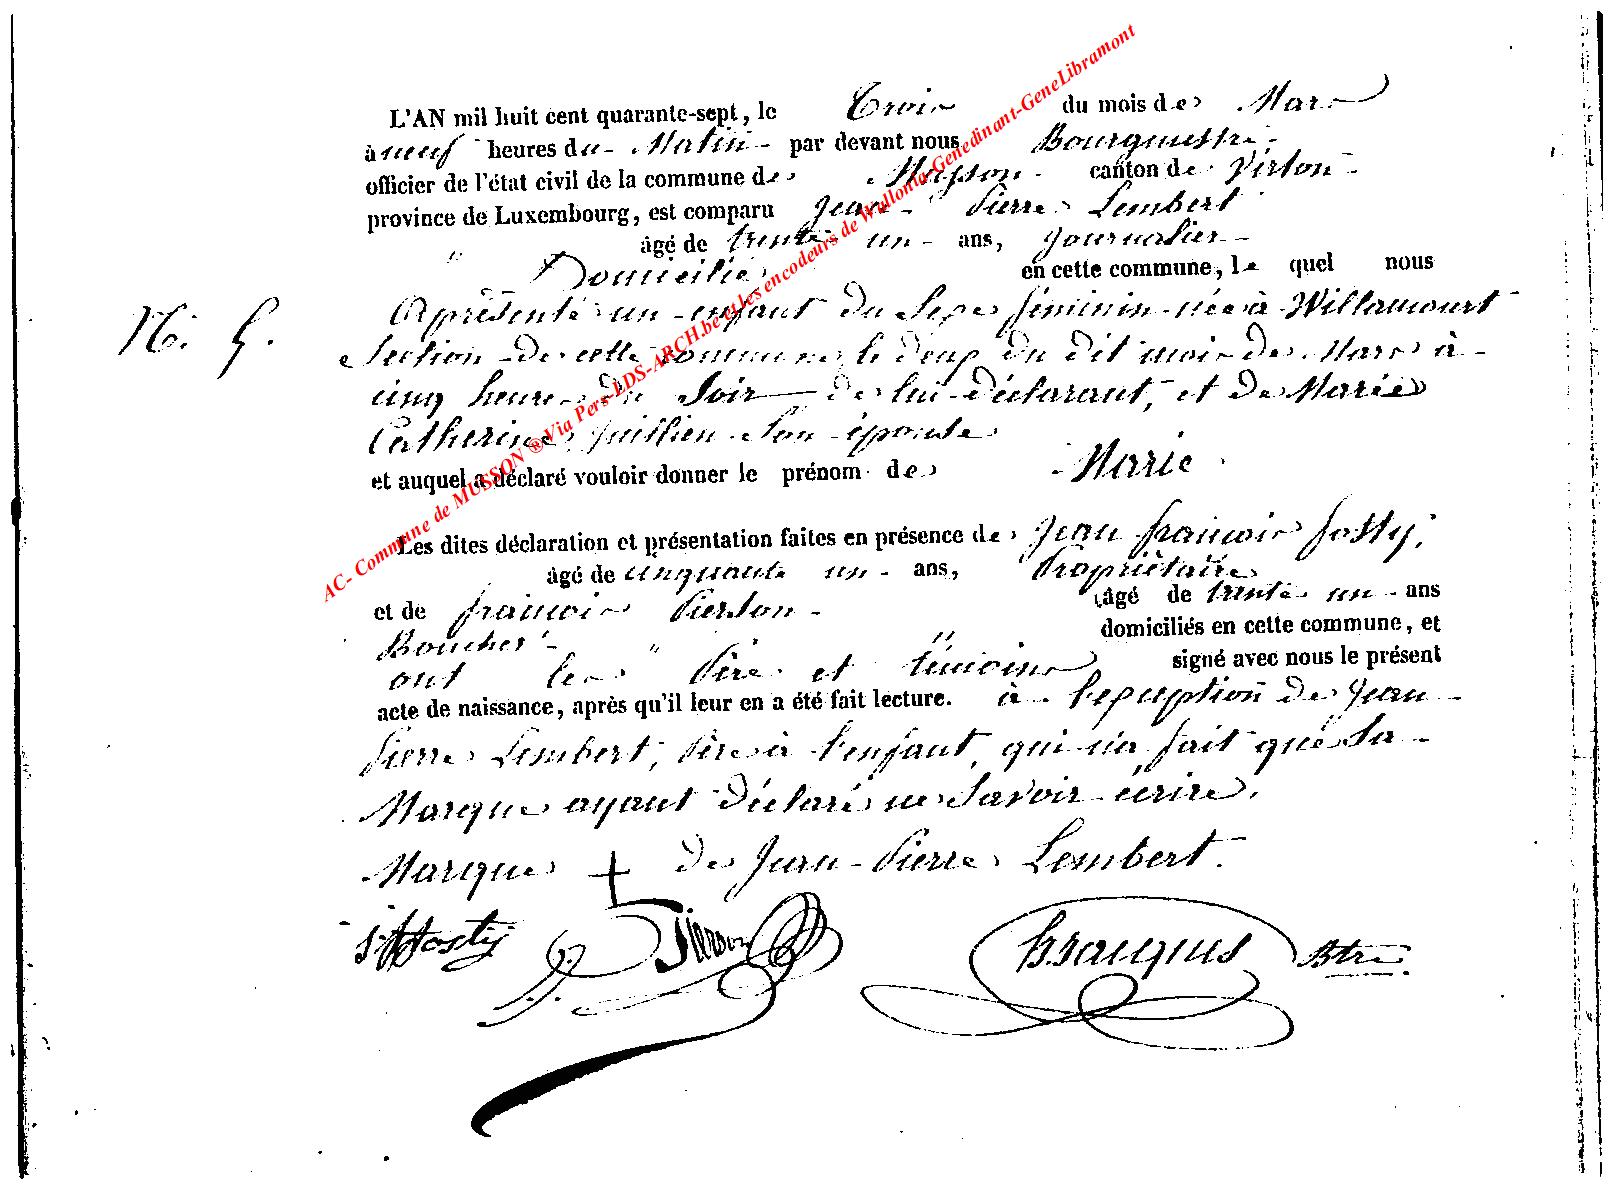 L'AN mil huit cent quarante-sept, le Trois du mois de Mars
à neuf heures du Matin par devant nous Bourgmestre
officier de l'état civil de la commune de Musson canton de Virton
province de Luxembourg, est comparu Jean Pierre Lembert
" âgé de trente un ans, Journalier
Domicilié en cette commune, le quel nous
N. 5. Aprésenté un enfant du Sexe féminin née à Willancourt
Section de cette commune le deux du dit mois de Mars à
cinq heures du Soir de lui déclarant, et de Marie
Catherine Juillien Son épouse
et auquel a déclaré vouloir donner le prénom de Marie
Les dites déclaration et présentation faites en présence de Jean françois Hosty,
âgé de cinquante un ans, Propriétaire
et de françois Pierson âgé de trente un ans
Boucher domiciliés en cette commune, et
ont les " Père et témoins signé avec nous le présent
acte de naissance, après qu'il leur en a été fait lecture. à l'exception de Jean
Pierre Lembert, Père à l'enfant, qui n'a fait que Sa
Marque ayant déclaré ne Savoir écrire.
Marque + de Jean Pierre Lembert.
Hosty Pierson Btre
AC- Commune de MUSSON ® Via Pers-LDS-ARCH.be et les encodeurs de Wallonia-Genedinant-GeneLibramont